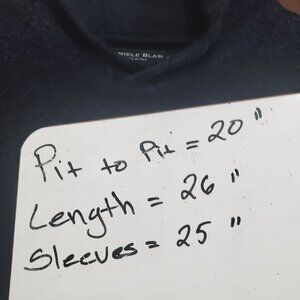 NIELE BLASI
Pit to Pit = 20"
Length = 26"
Sleeves = 25"